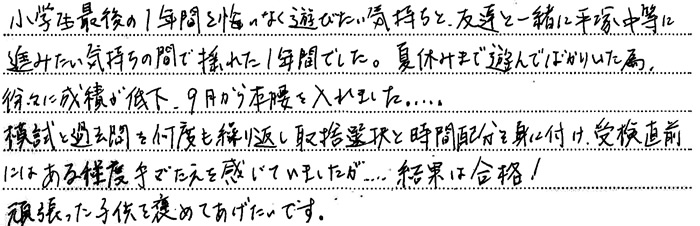 小学生最後の1年間を悔いなく遊びたい気持ちと、友達と一緒に平塚中等に
進みたい気持ちの間で揺れた1年間でした。夏休みまで遊んでばかりいた為、
徐々に成績が低下、9月から本腰を入れました.....
模試と過去問を何度も繰り返し取捨選択と時間配分を身に付け、受検直前
にはある程度手ごたえを感じていましたが.... 結果は合格!
頑張った子供を褒めてあげたいです。